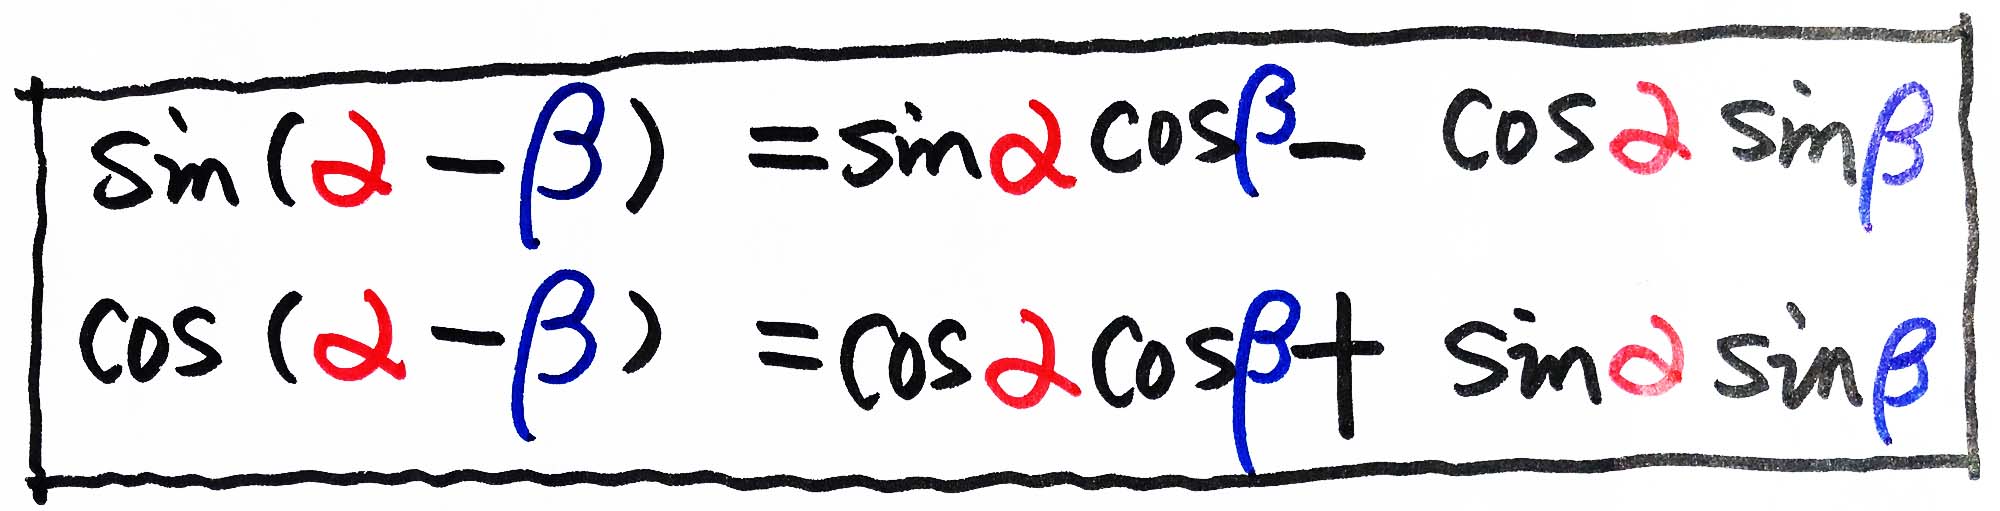 sin(α-β) =sinαcosβ- cosαsinβ
cos(α-β) =cosαcosβ+ sinαsinβ